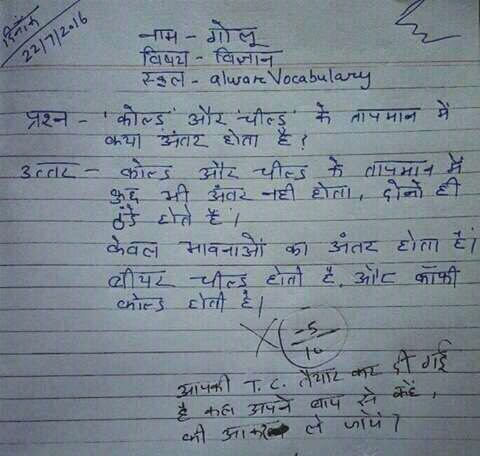 दिनांक
22/7/2016
नाम - गोलू
विषय - विज्ञान
स्कूल - alwar Vocabulary
प्रश्न - 'कोल्ड' और 'चील्ड' के तापमान में
क्या अंतर होता है?
उत्तर - कोल्ड और चील्ड के तापमान में
कुछ भी अंतर नही होता, दोनो ही
ठंडे होते है।
केवल भावनाओं का अंतर होता है।
बीयर चील्ड होती है, और कॉफी
कोल्ड होती है।
-5
10
आपकी T.C. तैयार कर दी गई
है कल अपने बाप से कहें,
की आकर ले जायें।